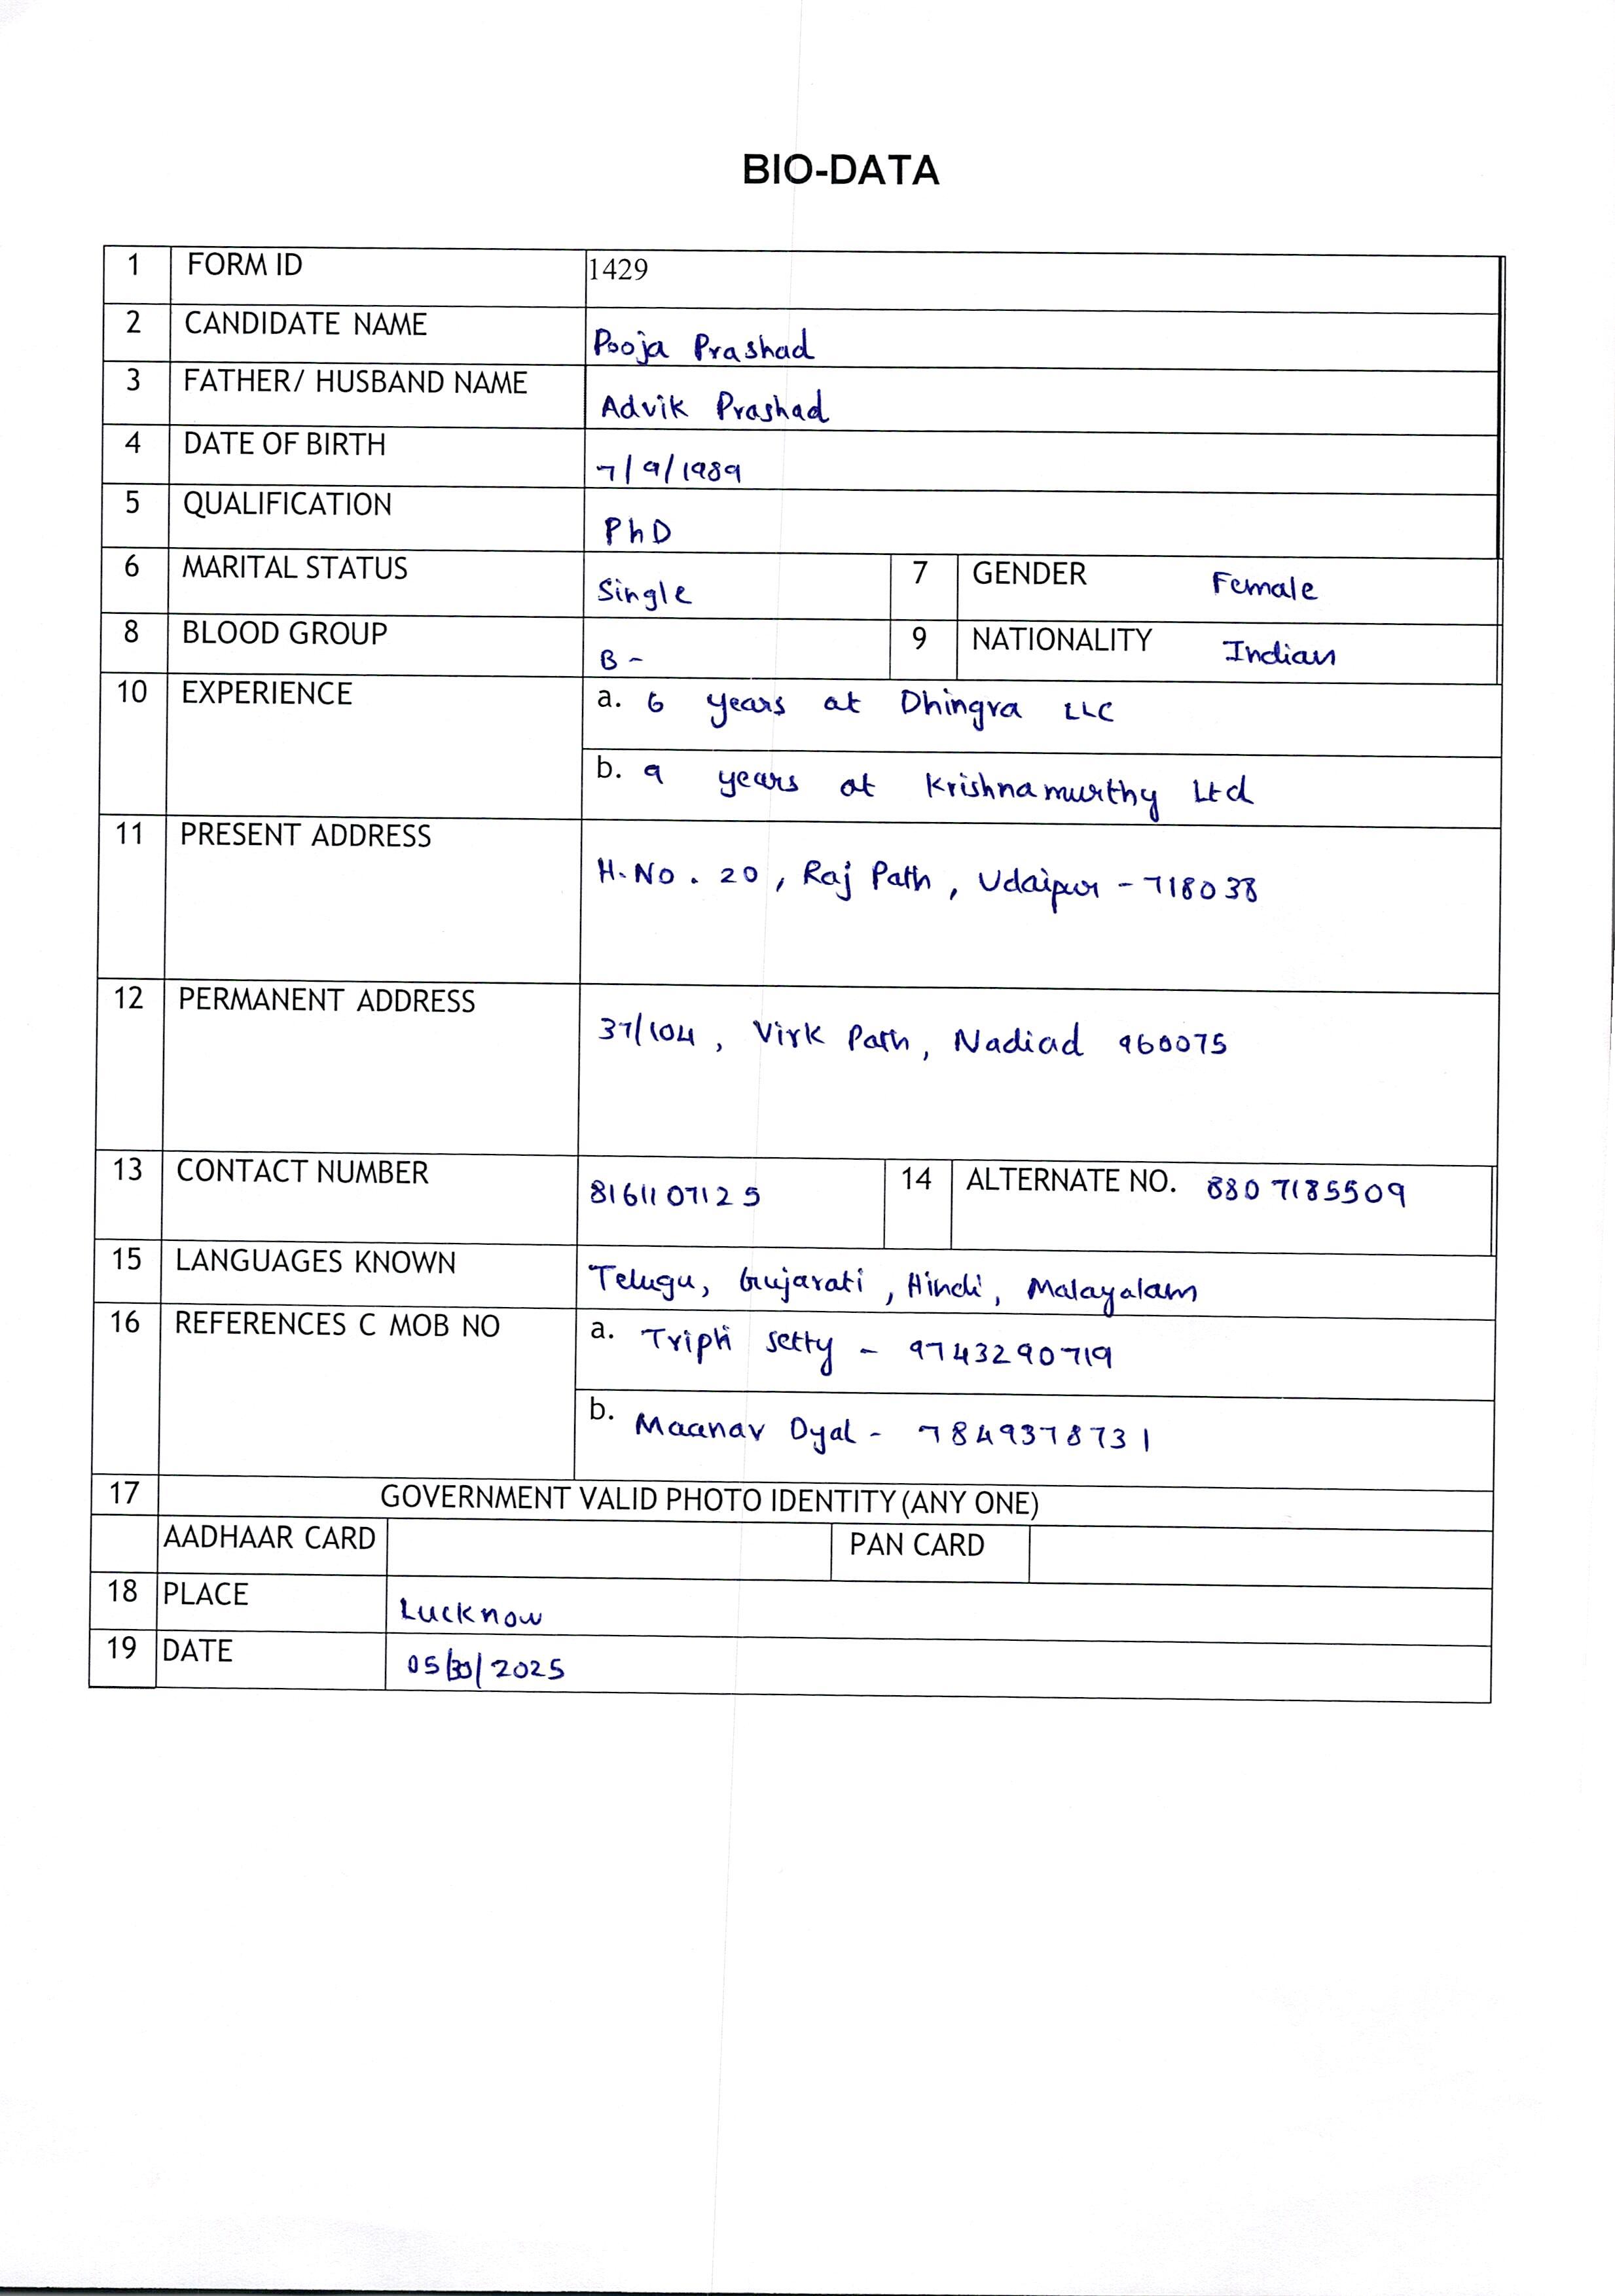 BIO-DATA
1 FORM ID 1429
2 CANDIDATE NAME Pooja Prashad
3 FATHER/ HUSBAND NAME Advik Prashad
4 DATE OF BIRTH 7/9/1989
5 QUALIFICATION PhD
6 MARITAL STATUS Single 7 GENDER Female
8 BLOOD GROUP B- 9 NATIONALITY Indian
10 EXPERIENCE a. 6 years at Dhingra LLC
b. 9 years at Krishnamurthy Ltd
11 PRESENT ADDRESS H.No. 20, Raj Path, Udaipur - 718038
12 PERMANENT ADDRESS 37/104, Virk Path, Nadiad 960075
13 CONTACT NUMBER 8161107125 14 ALTERNATE NO. 8807185509
15 LANGUAGES KNOWN Telugu, Gujarati, Hindi, Malayalam
16 REFERENCES C MOB NO a. Tripti Setty - 9743290719
b. Maanav Dyal - 7849378731
17 GOVERNMENT VALID PHOTO IDENTITY (ANY ONE)
AADHAAR CARD PAN CARD
18 PLACE Lucknow
19 DATE 05/30/2025